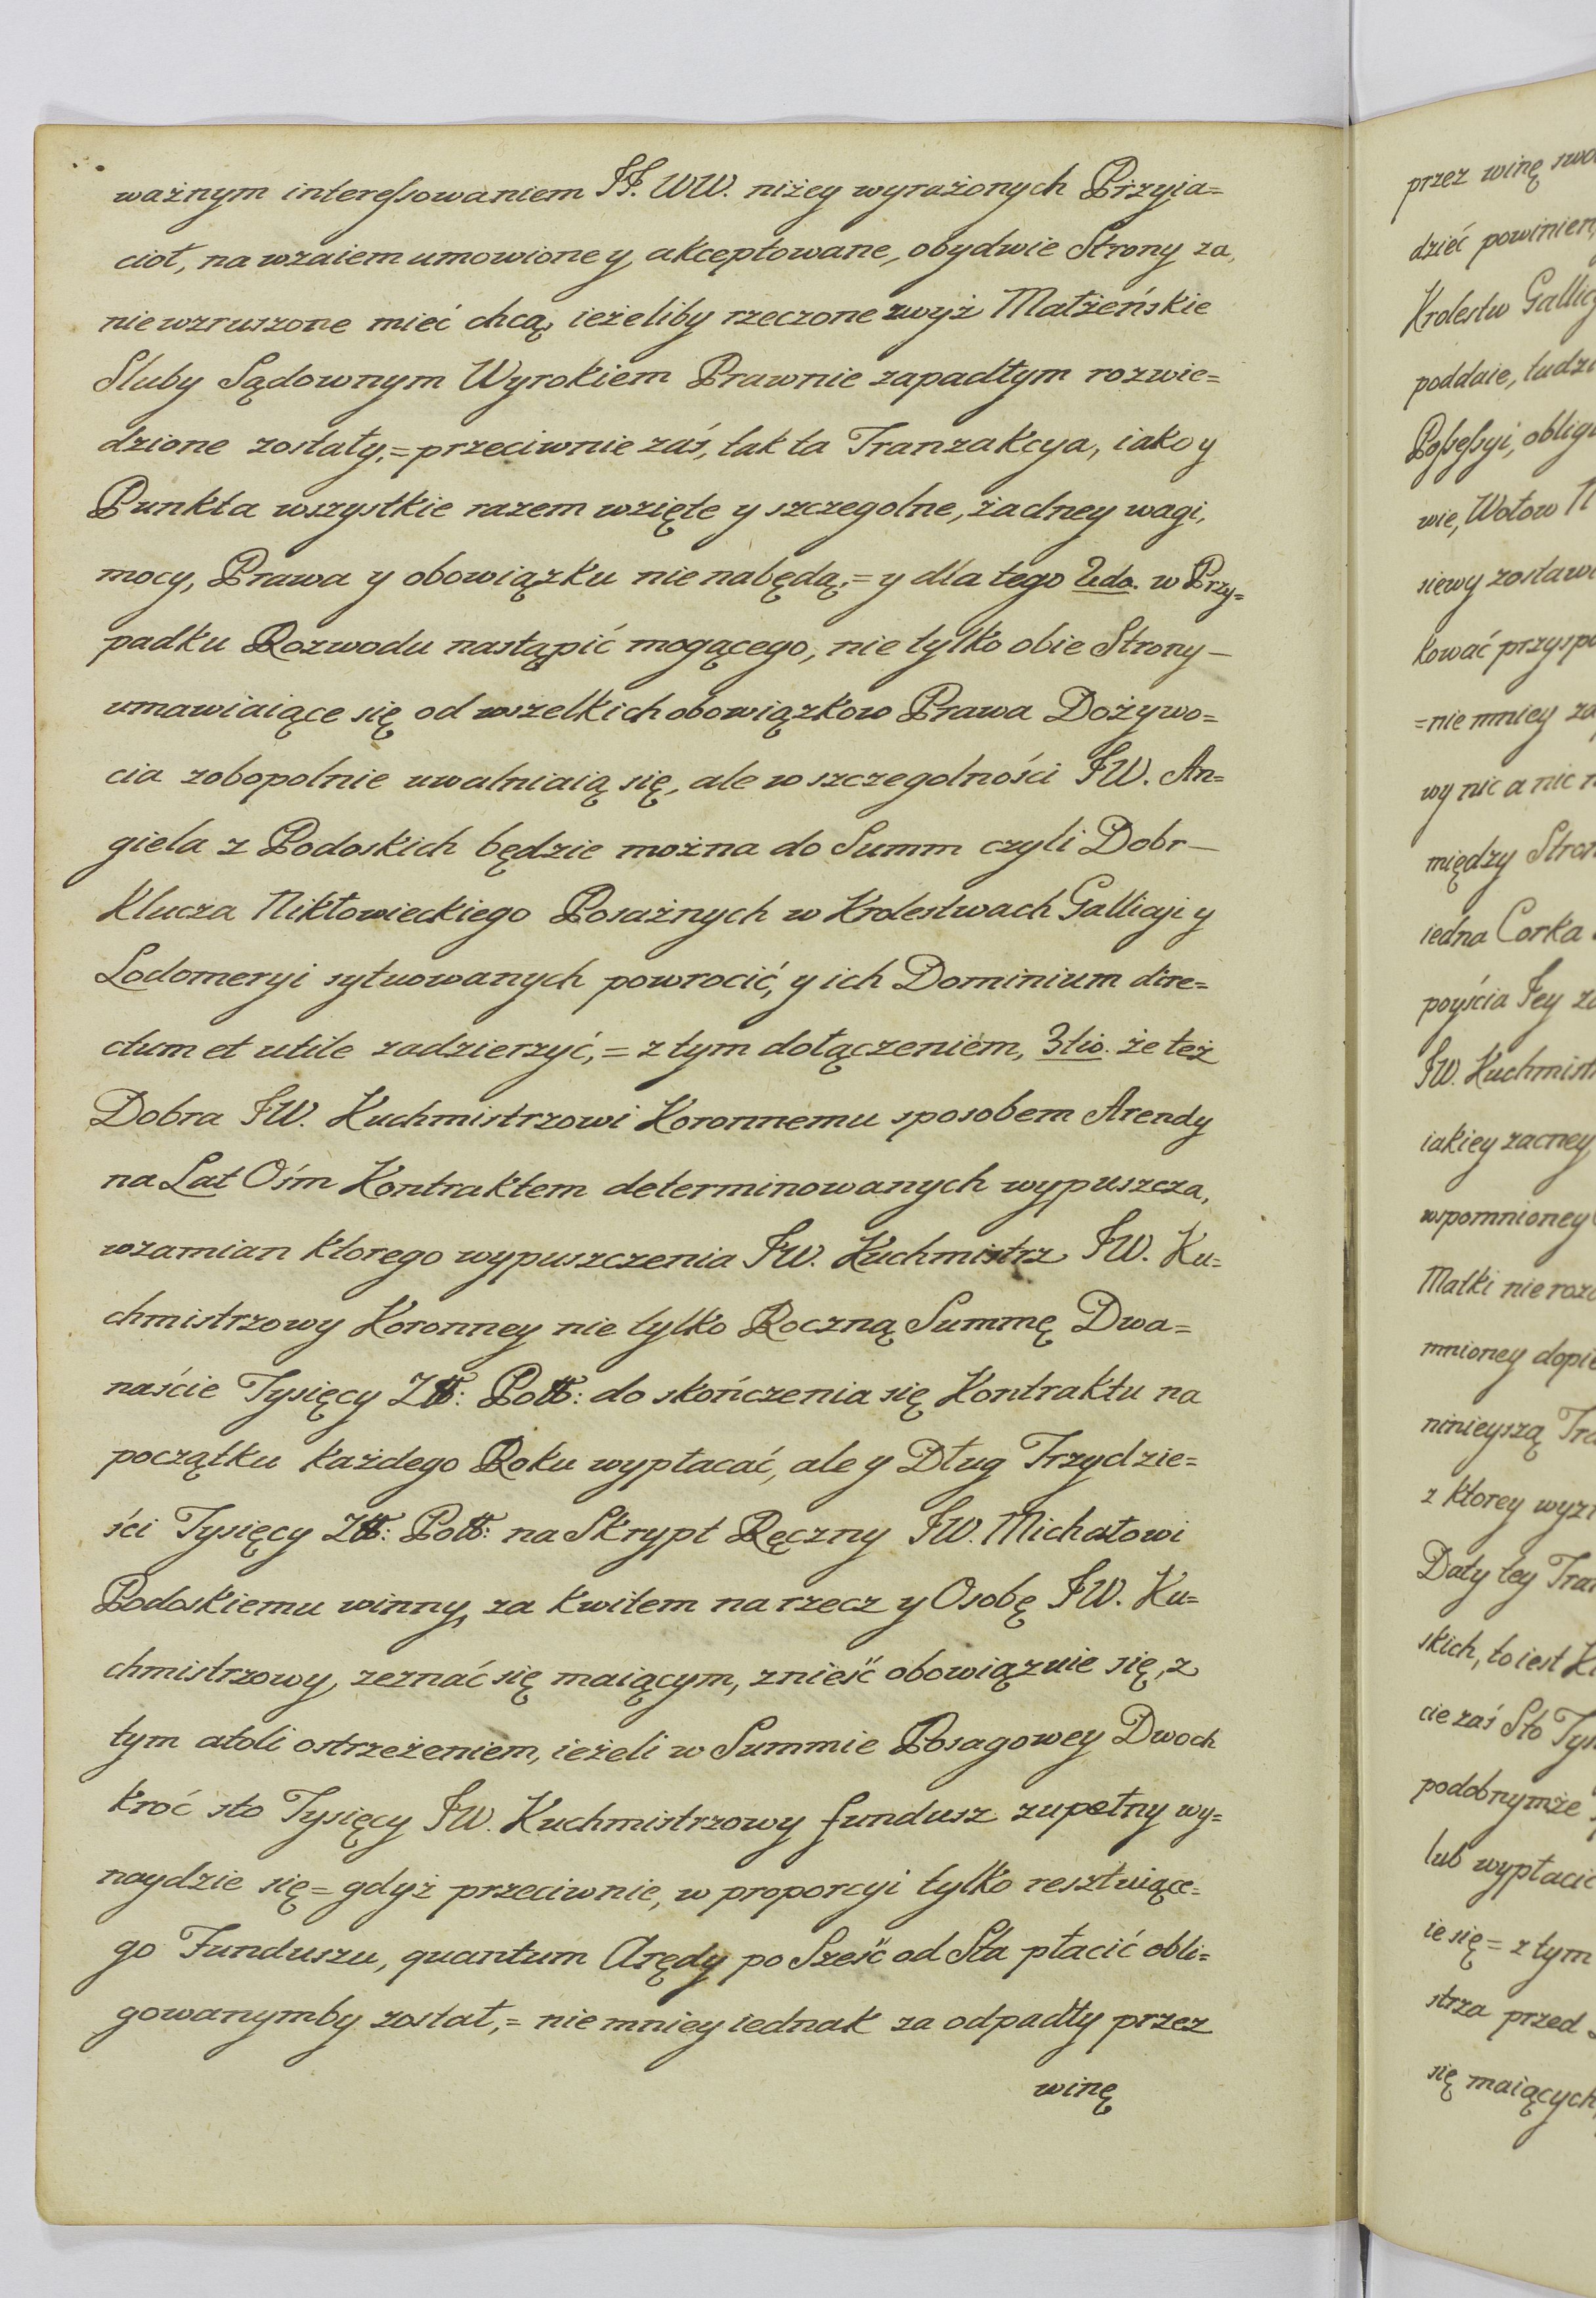 ważnym interessowaniem JJ. WW. niżey wyrażonych Przyia=
cioł, na wzaiem umowione y akceptowane, obydwie Strony za,
niewzruszone mieć chcą, ieżeliby rzeczone zwyż Małżeńskie
Sluby Sądownym Wyrokiem Prawnie zapadłym rozwie=
dzione zostały,= przeciwnie zaś, tak ta Tranzakcya, iako y
Punkta wszystkie razem wzięte y szczegolne, żadney wagi,
mocy, Prawa y obowiązku nie nabędą,= y dla tego 2do. w Przy=
padku Rozwodu nastąpić mogącego, nie tylko obie Strony —
umawiaiące się od wszelkich obowiązkow Prawa Dożywo=
cia zobopolnie uwalniaią się, ale w szczegolności JW. An=
giela z Podoskich będzie można do Summ czyli Dobr —
Klucza Nikłowieckiego Posażnych w Krolestwach Gallicyi y
Lodomeryi sytuowanych powrocić, y ich Dominium dire=
ctum et utile zadzierzyć,= z tym dołączeniem, 3tio. że też
Dobra JW. Kuchmistrzowi Koronnemu sposobem Arendy
na Lat Ośm Kontraktem determinowanych wypuszcza,
wzamian ktorego wypuszczenia JW. Kuchmistrz JW. Ku=
chmistrzowy Koronney nie tylko Roczną Summę Dwa=
naście Tysięcy Złł: Poll: do skończenia się Kontraktu na
początku każdego Roku wypłacać, ale y Dług Trzydzie=
ści Tysięcy Złł: Poll: na Skrypt Ręczny JW. Michałowi
Podoskiemu winny, za kwitem na rzecz y Osobę JW. Ku=
chmistrzowy, zeznać się maiącym, znieść obowiązuie się, z
tym atoli ostrzeżeniem, ieżeli w Summie Posagowey Dwoch
kroć sto Tysięcy JW. Kuchmistrzowy fundusz zupełny wy=
naydzie się= gdyż przeciwnie, w proporcyi tylko resztuiące=
go Funduszu, quantum Arędy po Sześć od Sta płacić obli=
gowanymby został,= nie mniey iednak za odpadły przez
winę
przez winę
dzieć powinien,
Krolestw
poddaie, tudzi
Possessyi,
wie, Wołow
siewy
kować
=nie mniey
wy nic a nic
między
iedna Corka
poyścia Jey
JW.
iakiey zacney
wspomnioney
Matki nie
mnioney
ninieyszą
z ktorey
Daty tey
skich, to iest
cie zaś Sto
podobnymże
lub
ie się= z tym
strza przed
się maiących